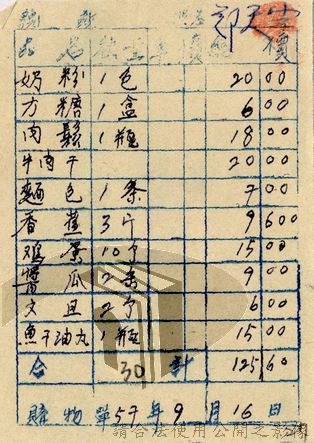 品 名 數 量 單 價 總 價
奶粉 1包 20 00
方糖 1盒 6 00
肉鬆 1瓶 18 00
牛肉干 20 00
麵包 1条 7 00
香蕉 3斤 9 600
鸡蛋 10个 15 00
醬瓜 2条 9 00
文旦 2个 6 00
魚干油丸 1瓶 15 00
合 30 計 125 60
購物單 57年9月16日
請合法使用公開之影像